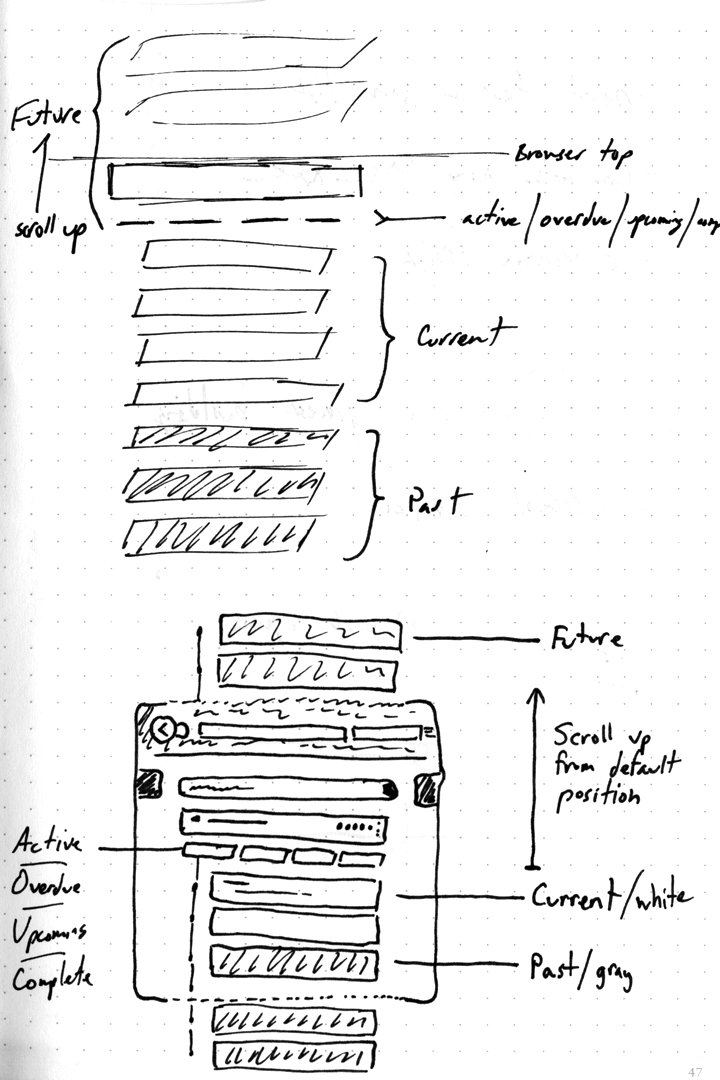 Future
Browser top
scroll up
active/overdue/upcoming/comp
Current
Past
Future
Scroll up
from default
position
Active
Overdue
Upcoming
Complete
Current/white
Past/gray
47